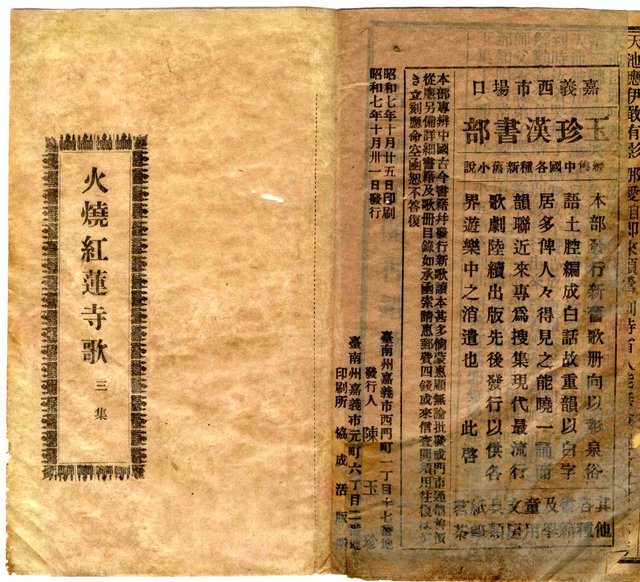 嘉義西市場口
玉珍漢書部
經售中國各種新舊小說
本部發行新舊歌册向以彰泉俗
語土腔編成白話故重韻以白字
居多俾人々得見之能曉一誦而
韻聯近來專爲搜集現代最流行
歌劇陸續出版先後發行以供各
界遊樂中之消遣也　此啓
其他各種書籍及學童用文房具類紙筆茗茶
本部專辦中國古今書籍并發行新歌讀本甚多倘蒙惠顧無論批發或門市通信皆
從應另備詳細書籍及歌册目錄如承函索請惠郵費四錢或來信查問須用往復
き立刻應命空函恕不答復
昭和七年十月廿五日印刷
昭和七年十月卅一日發行
臺南州嘉義市西門町一丁目
發行人 陳玉珍
臺南州嘉義市元町六丁目二
印刷所 協成活版所
火燒紅蓮寺歌
三集